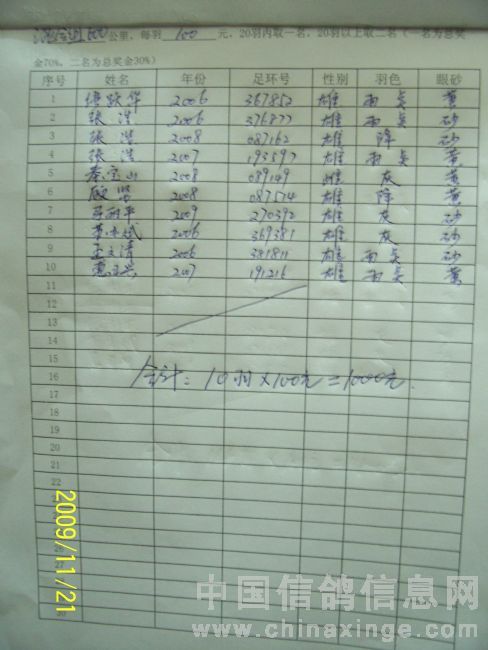 600公里，每羽100元，20羽内取一名，20羽以上取二名（一名为总奖
金70%，二名为总奖金30%）
序号 姓名 年份 足环号 性别 羽色 眼砂
1 跃华 2006 367852 雄 雨点 黄
2 张浩 2006 376877 雄 雨点 砂
3 张浩 2008 087162 雄 降 砂
4 张浩 2007 193597 雄 雨点 黄
5 秦宝山 2008 089149 雌 灰 黄
6 殷贤 2008 087514 雄 降 黄
7 平 2009 270392 雄 灰 砂
8 斌 2006 369381 雄 灰 砂
9 孟文清 2006 381811 雄 雨点 砂
10 2007 191216 雄 雨点 黄
11
12
13
14
15
合计：10羽×100元=1000元.
16
17
18
19
20
21
22
23
24
25
26
27
28
2009/11/21
中国信鸽信息网
www.chinaxinge.com